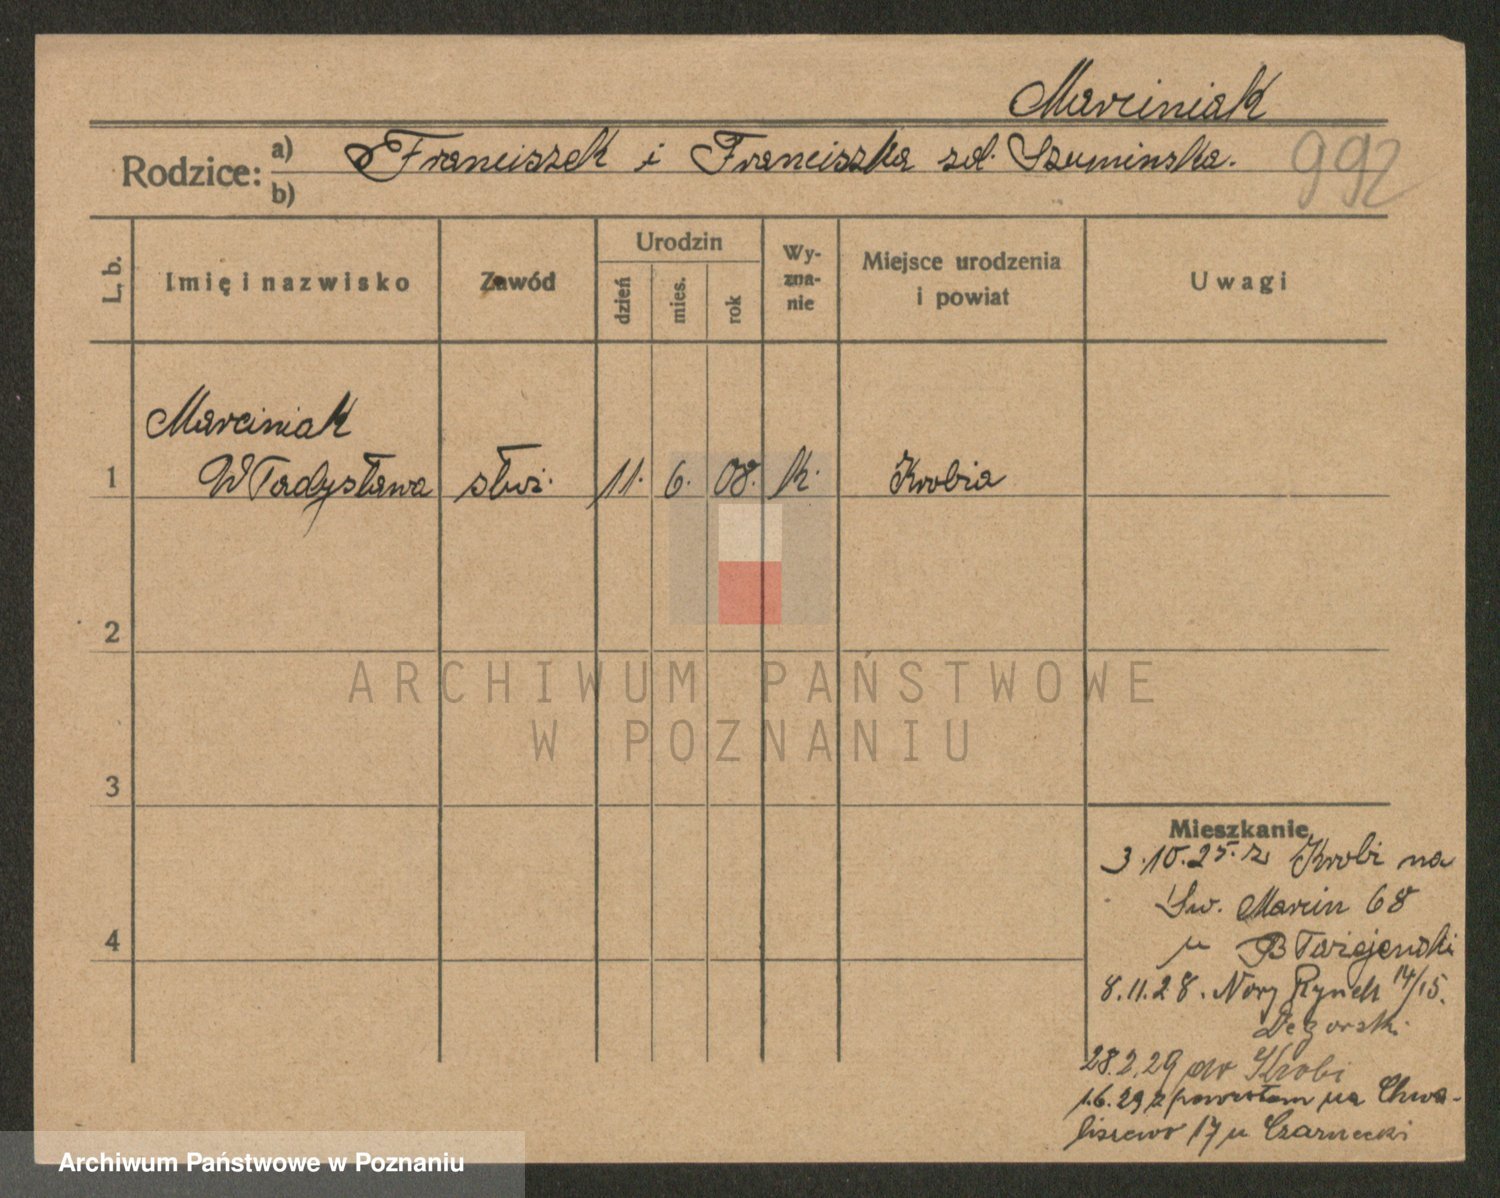 Marciniak
Rodzice:
a) Franciszek i Franciszka zd. Szuminska.
b)
992
L. b.
Imię i nazwisko
Zawód
Urodzin
dzień
mies.
rok
Wy-
zna-
nie
Miejsce urodzenia
i powiat
Uwagi
Marciniak
1 Władysława służ. 11. 6. 08. k. Krobia
2
3
4
ARCHIWUM PAŃSTWOWE
W POZNANIU
Mieszkanie
3.10.25. z Krobi na
Św. Marcin 68
u Błażejewski
8.11.28. Nowy Rynek 14/15.
Degorski
28.2.29 do Krobi
1.6.29 z powrotem na Chwa-
liszewo 17 u Czarnecki
Archiwum Państwowe w Poznaniu